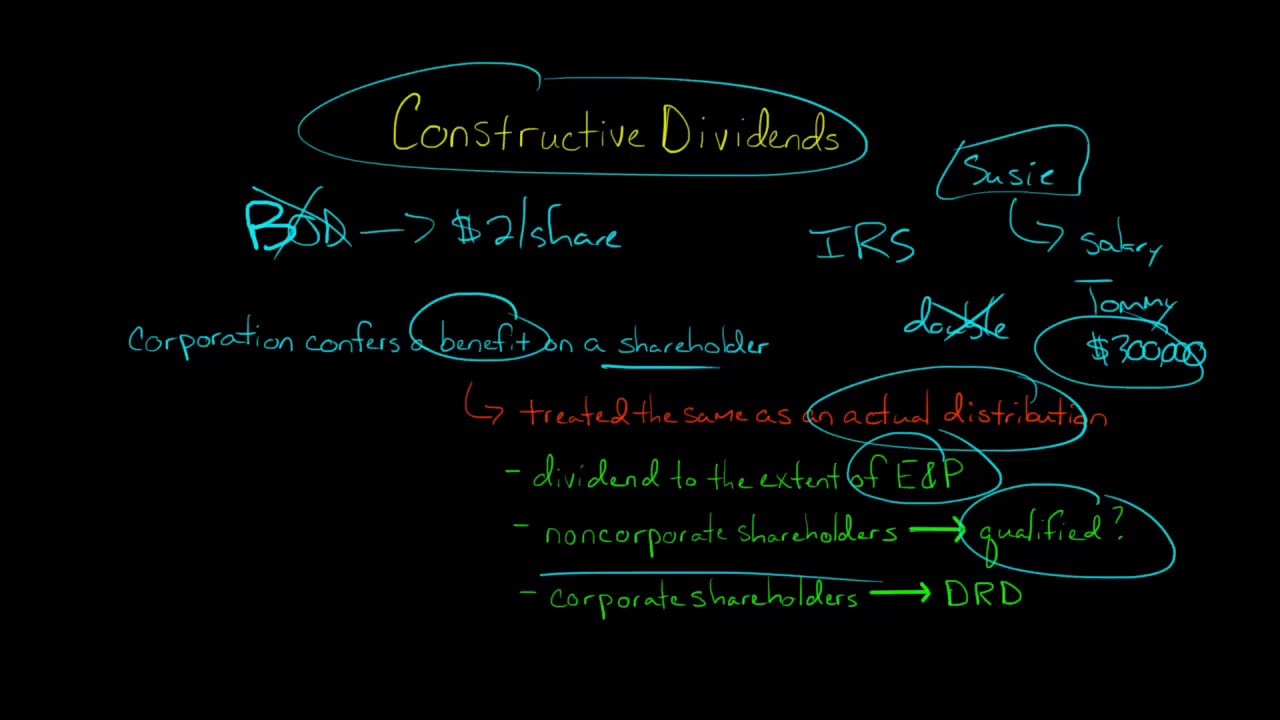 Constructive Dividends
Susie
BOD → $2/share
IRS
salary
Tommy
double
$300,000
corporation confers a benefit on a shareholder
treated the same as an actual distribution
- dividend to the extent of E&P
- noncorporate shareholders → qualified?
- corporate shareholders → DRD